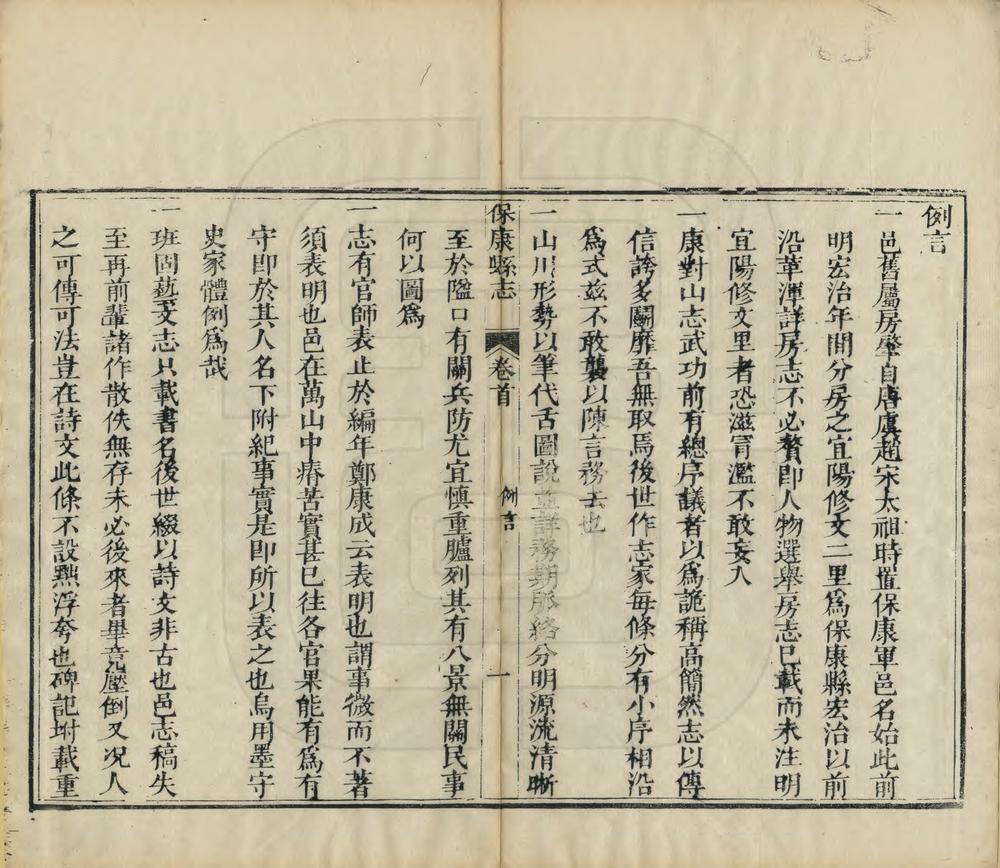 例言
一邑舊屬房肇自唐虞趙宋太祖時置保康軍邑名始此前
明宏治年間分房之宜陽修文二里爲保康縣宏治以前
沿革渾詳房志不必贅即人物選舉房志已載而未注明
宜陽修文里者恐滋冐濫不敢妄入
一康對山志武功前有總序議者以爲詭稱高簡然志以傳
信誇多鬬靡吾無取焉後世作志家每條分有小序相沿
爲式兹不敢襲以陳言務去也
一山川形勢以筆代舌圖說並詳務期脈絡分明源流清晰
保康縣志
卷首
例言
一
至於隘口有關兵防尤宜慎重臚列其有八景無關民事
何以圖爲
一志有官師表止於編年鄭康成云表明也謂事微而不著
須表明也邑在萬山中瘠苦實甚已往各官果能有爲有
守即於其人名下附紀事實是即所以表之也烏用墨守
史家體例爲哉
一班固藝文志只載書名後世綴以詩文非古也邑志稿失
至再前輩諸作散佚無存未必後來者畢竟壓倒又况人
之可傳可法豈在詩文此條不設黜浮夸也碑記坿載重